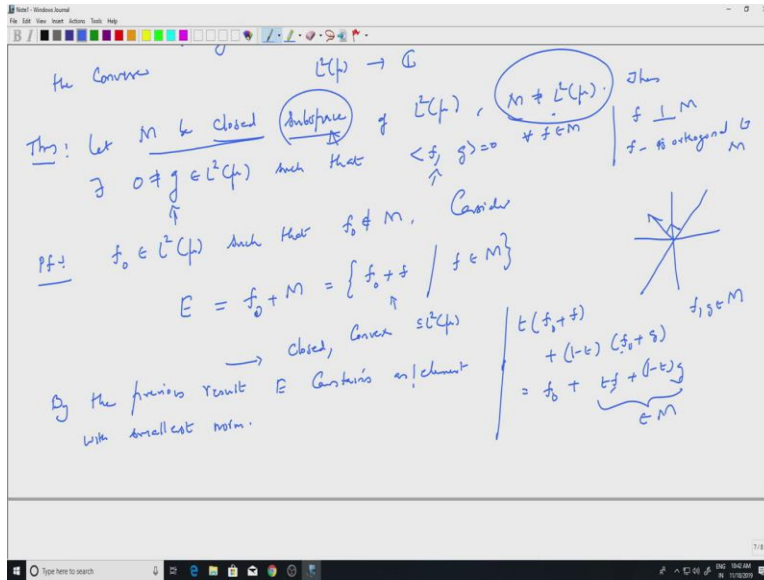 Note1 - Windows Journal
File Edit View Insert Actions Tools Help
the Converse L²(μ) → ℂ
Thm: Let M be closed subspace of L²(μ), M ≠ L²(μ). Then
∃ 0 ≠ g ∈ L²(μ) such that <f, g> = 0 ∀ f ∈ M
f ⊥ M
f - is orthogonal to M
Pf: f₀ ∈ L²(μ) such that f₀ ∉ M. Consider
E = f₀ + M = {f₀ + f / f ∈ M}
→ closed, Convex ⊆ L²(μ)
By the previous result E Contains an ! element
with smallest norm.
f, g ∈ M
t(f₀ + f)
+ (1-t) (f₀ + g)
= f₀ + tf + (1-t)g
∈ M
7/8
Type here to search
ENG 10:42 AM
IN 11/18/2019